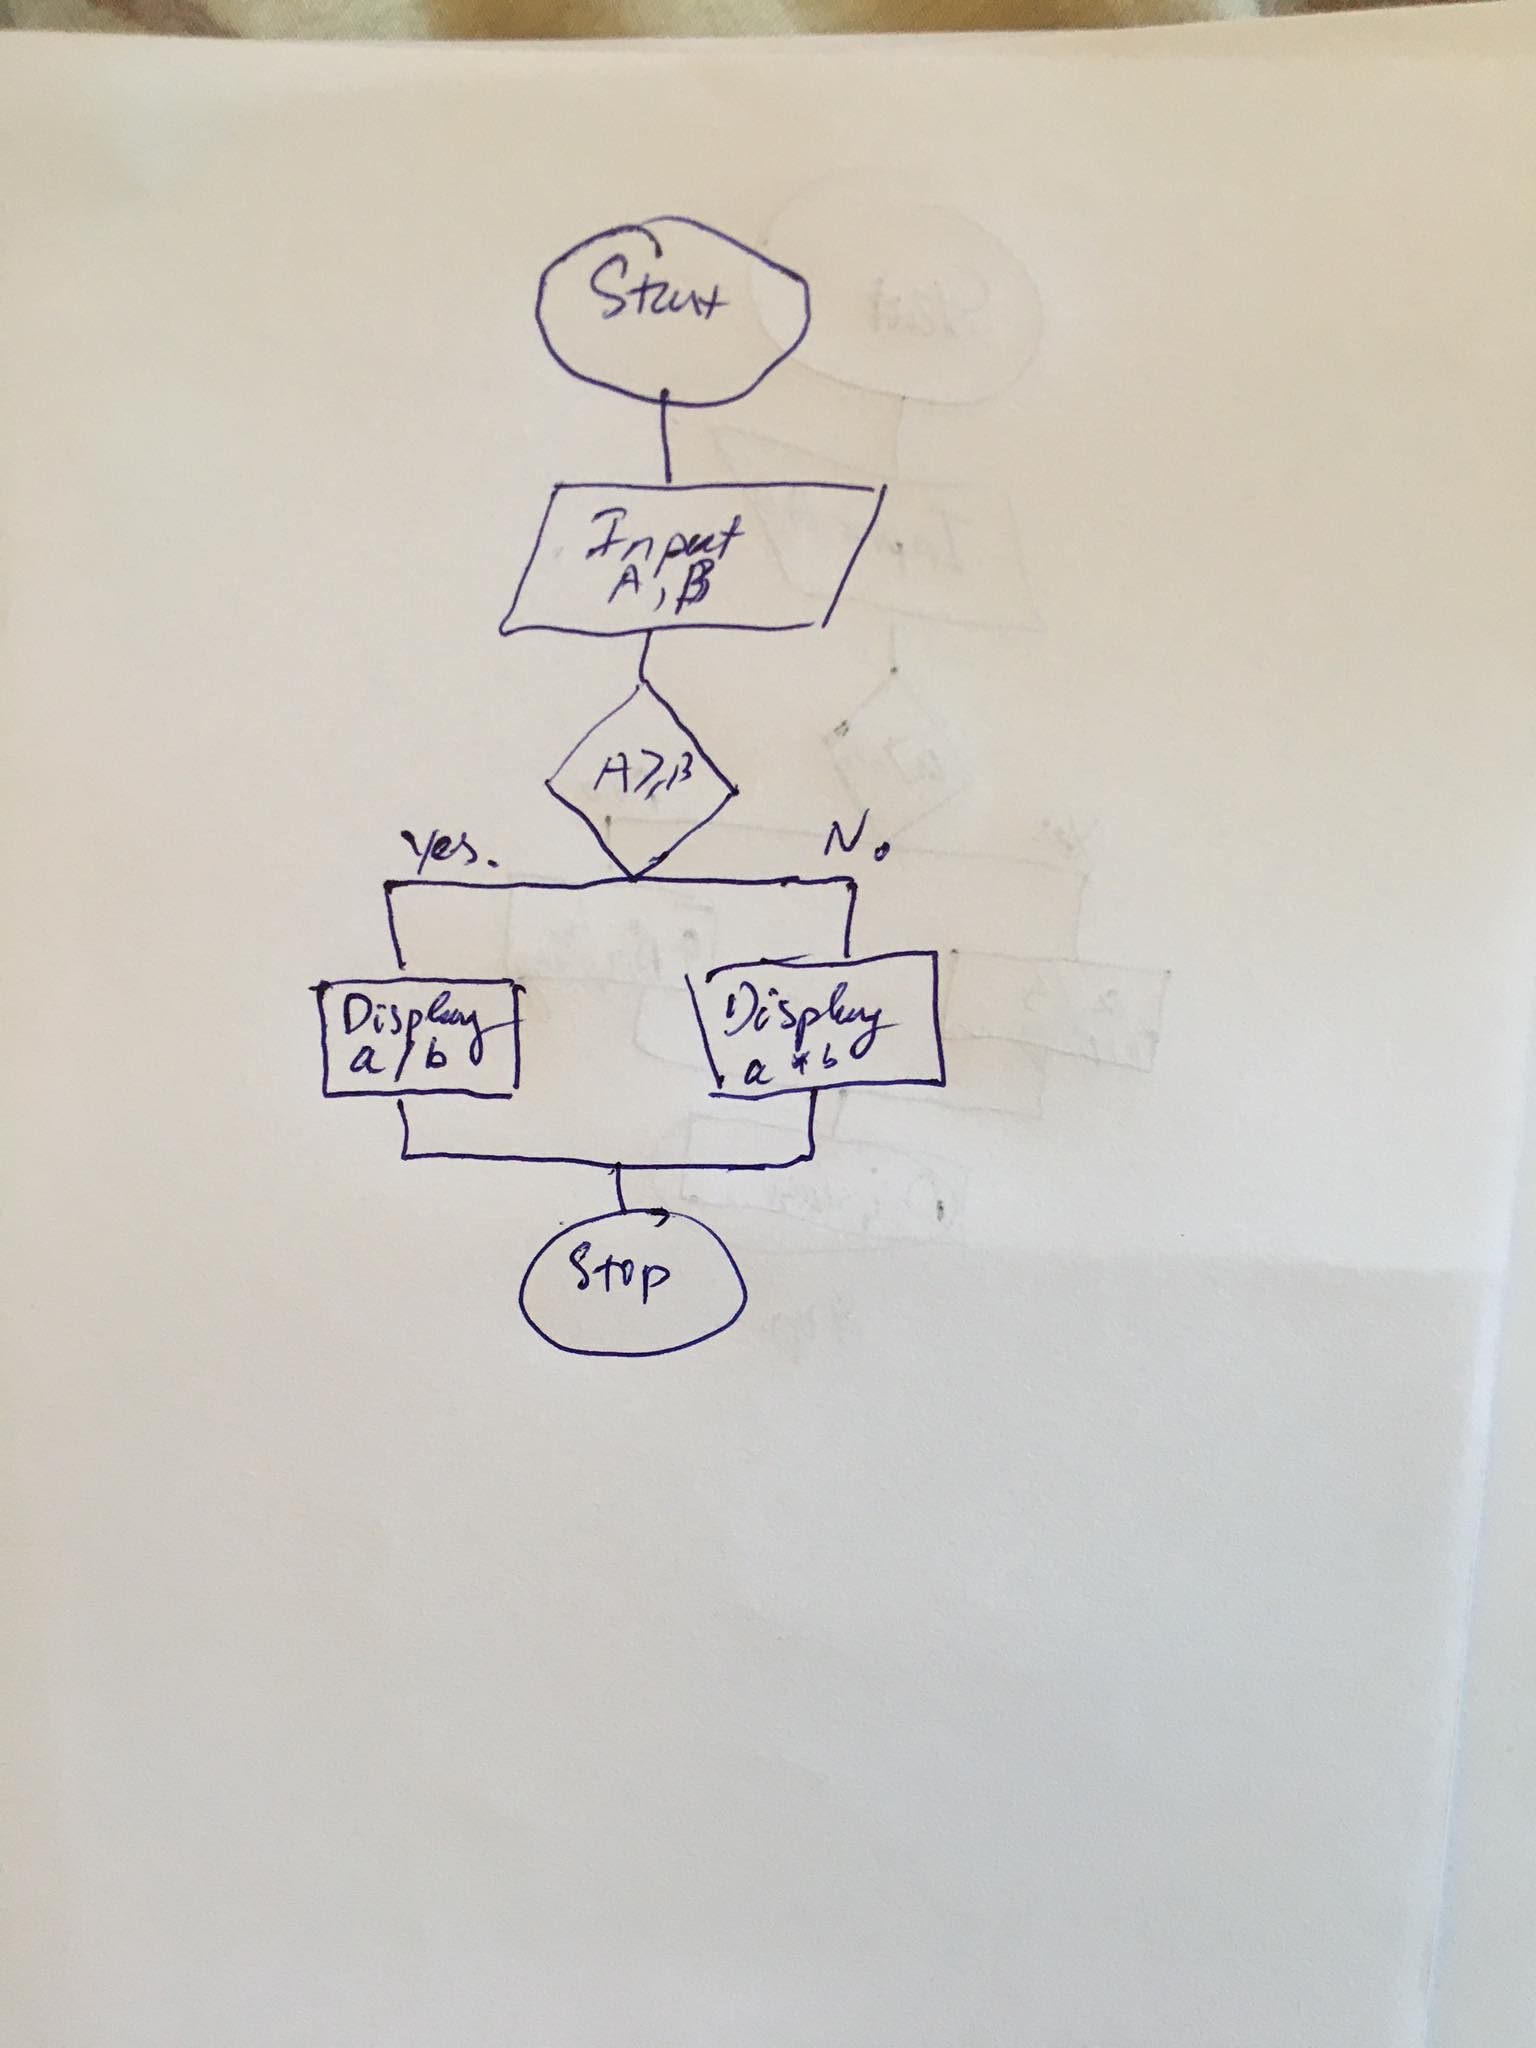 Start
Input
A, B
A≥B
Yes.
No
Display
a / b
Display
a * b
Stop